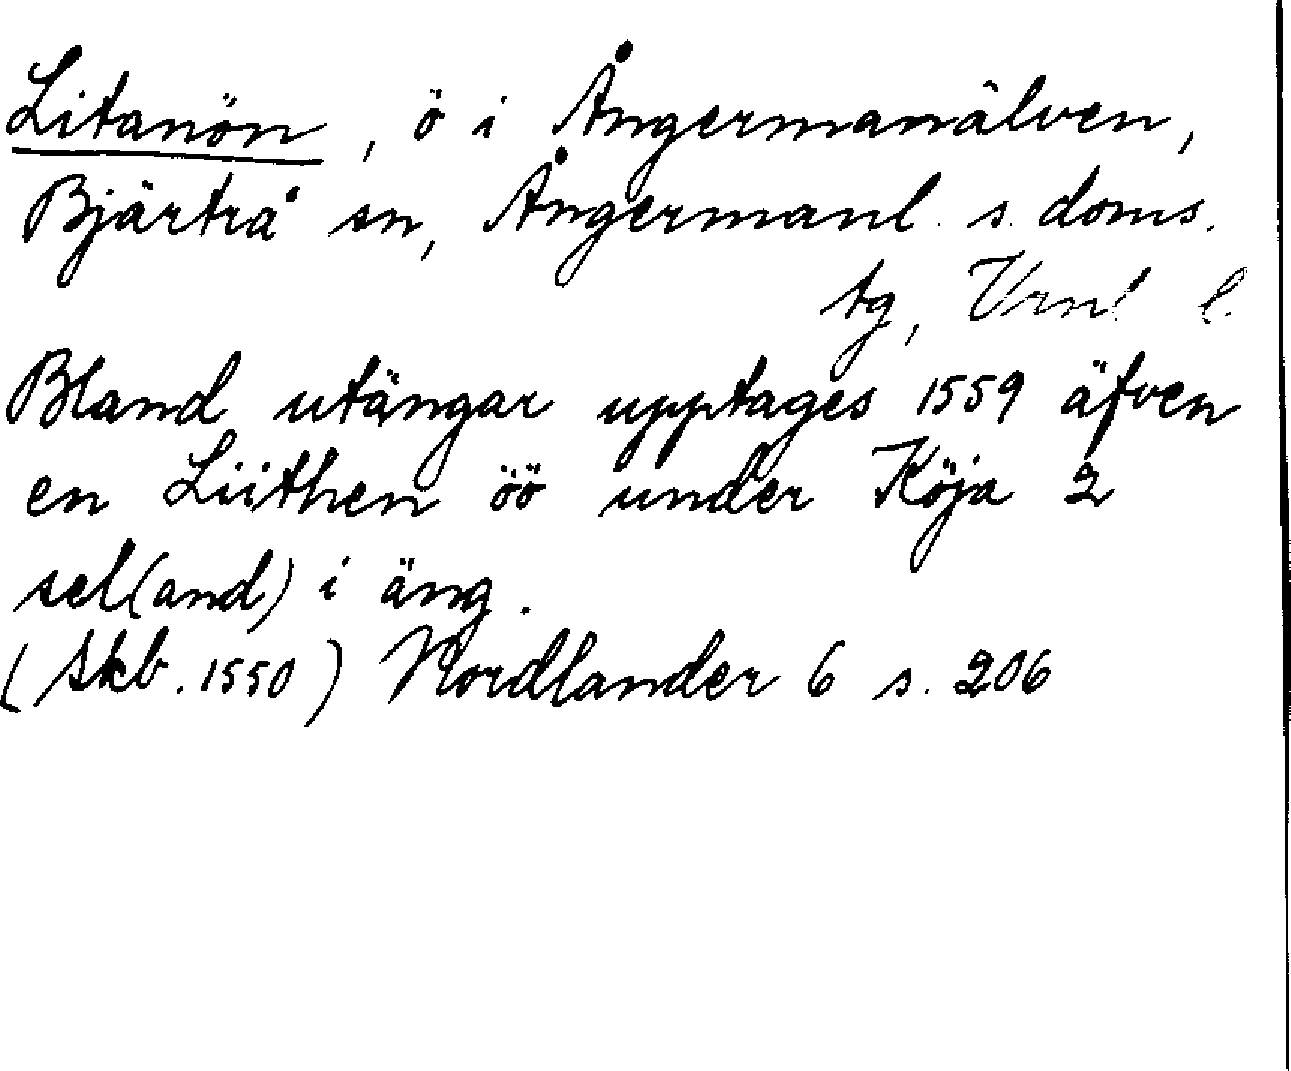 Litanön, ö i Ångermanälven,
Bjärtrå sn, Ångermanl. s. doms.
tg, Vrnl l.
Bland utängar upptages 1559 äfven
en Liithen öö under Köja 2
sel(and) i äng.
(Skb. 1550) Nordlander 6 s. 206